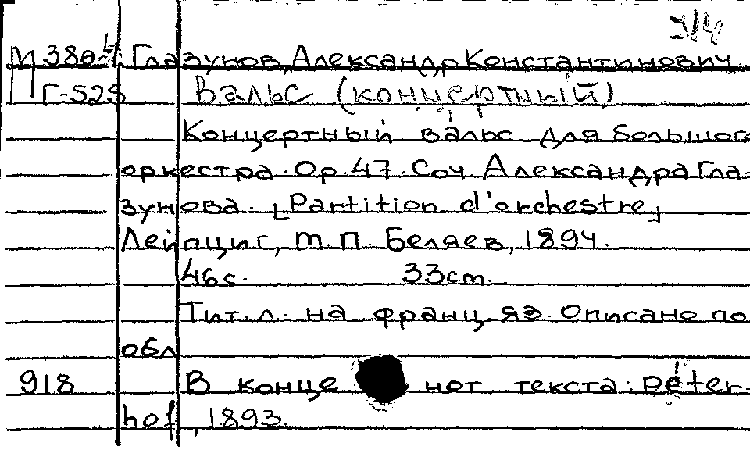 3/4
М 380-4 Глазунов, Александр Константинович
Г-528 Вальс (концертный)
Концертный вальс для большого
оркестра. Ор. 47. Соч. Александра Гла-
зунова. [Partition d'orchestre]
Лейпциг, М. П. Беляев, 1894.
46с. 33cm.
Тит. л. на франц. яз. Описано по
обл
918 В конце нот текста: Peter-
hof, 1893.